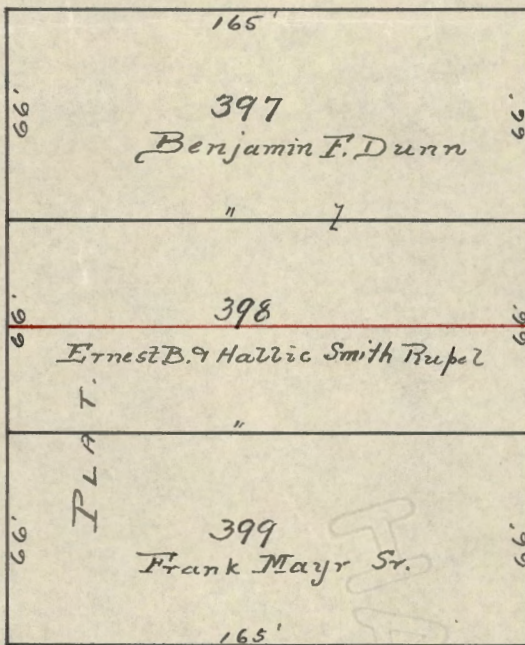 165'
66' 397 66'
Benjamin F. Dunn
"
66' 398 66'
Ernest B. & Hallie Smith Rupel
"
PLAT.
66' 399 66'
Frank Mayr Sr.
165'